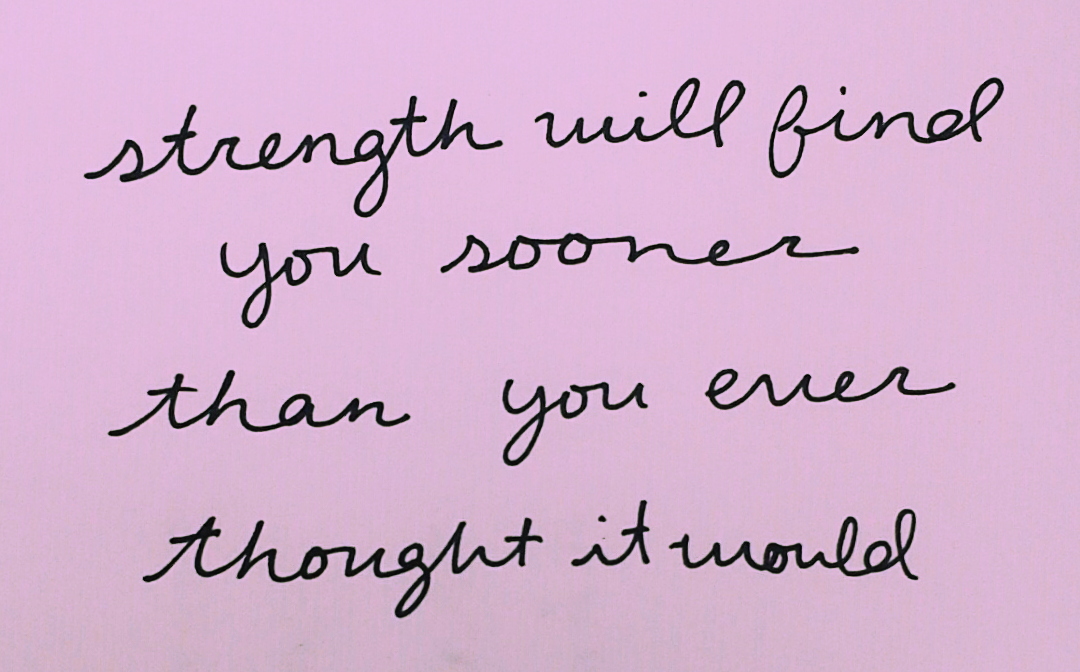 strength will find
you sooner
than you ever
thought it would